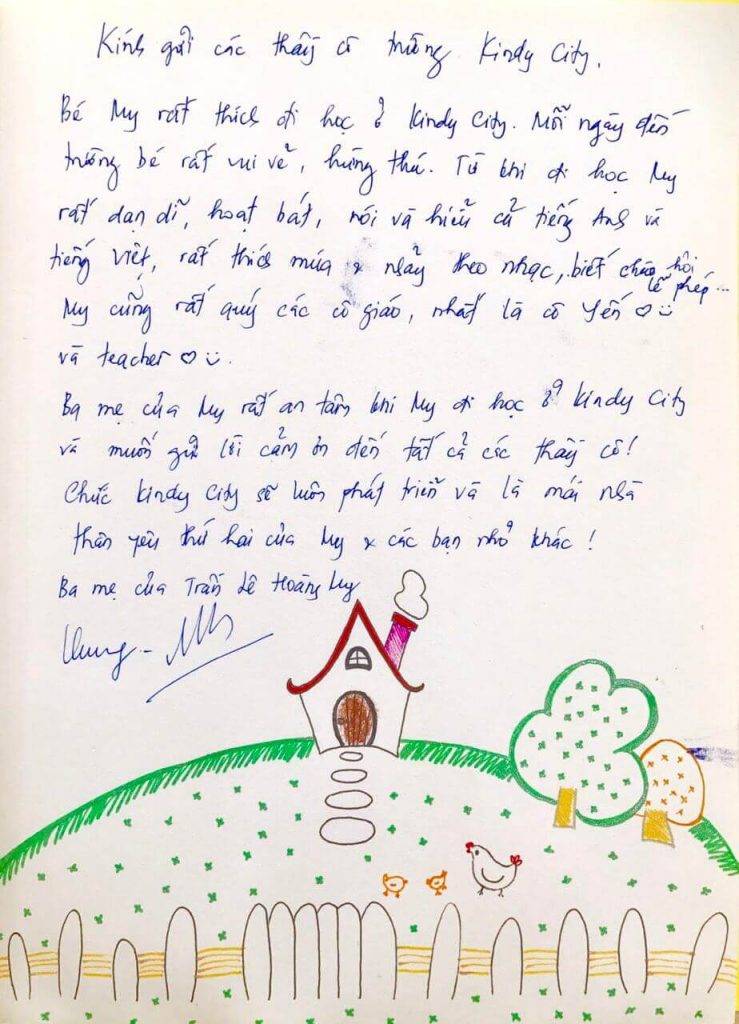 Kính gửi các thầy cô trường Kindy City.
Bé My rất thích đi học ở Kindy City. Mỗi ngày đến
trường bé rất vui vẻ, hứng thú. Từ khi đi học My
rất dạn dĩ, hoạt bát, nói và hiểu cả tiếng Anh và
tiếng Việt, rất thích múa x nhảy theo nhạc, biết chào hỏi
lễ phép...
My cũng rất quý các cô giáo, nhất là cô Yến ♡ ☺
và teacher ♡ ☺.
Ba mẹ của My rất an tâm khi My đi học ở Kindy City
và muốn gửi lời cảm ơn đến tất cả các thầy cô!
Chúc Kindy City sẽ luôn phát triển và là mái nhà
thân yêu thứ hai của My x các bạn nhỏ khác!
Ba mẹ của Trần Lê Hoàng My